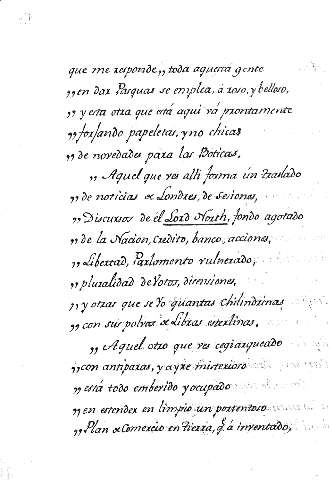 que me responde,,, toda aquesta gente
,, en dar Pasquas se emplea, a roso, y belloso,
,, y esta otra que está aqui vá prontamente
,, forjando papeletas, y no chicas
,, de novedades para las Boticas.
,, Aquel que ves alli forma ún traslado
,, de noticias de Londres, de Sesiones,
,, Discursos de él Lord North, fondo agotado
,, de la Nacion, Credito, banco, acciones,
,, Libertad, Parlamento vulnerado,
,, pluralidad de Votos, disensiones,
,, y otras que se Yo quantas Chilindrinas
,, con sus polvos de Libras esterlinas.
,, Aquel otro que ves cegiarqueado
,, con antiparas, y ayre misterioso
,, está todo embevido y ocupado
,, en estender en limpio un portentoso
,, Plan de Comercio en tierra, q.e á inventado,